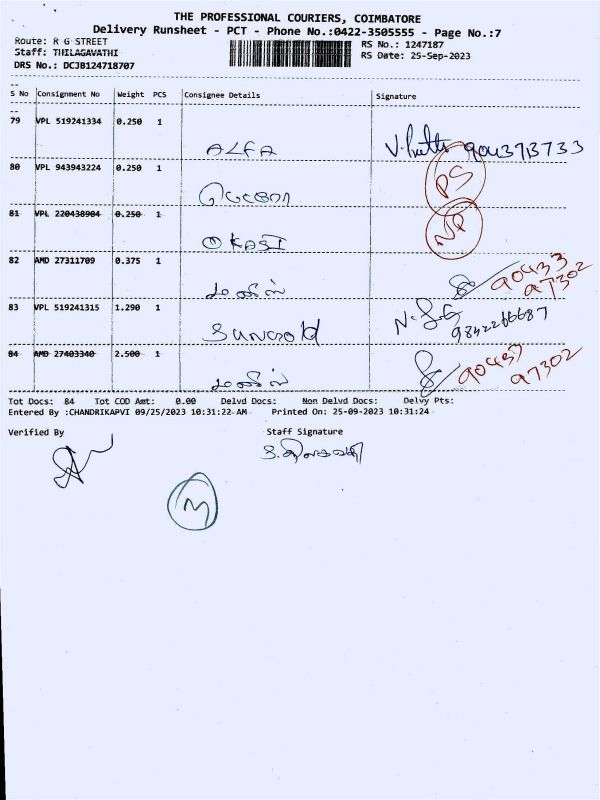 THE PROFESSIONAL COURIERS, COIMBATORE
Delivery Runsheet - PCT - Phone No.:0422-3505555 - Page No.:7
Route: R G STREET RS No.: 1247187
Staff: THILAGAVATHI RS Date: 25-Sep-2023
DRS No.: DCJB124718707
S No Consignment No Weight PCS Consignee Details Signature
79 VPL 519241334 0.250 1
ALFA 9043713733
80 VPL 943943224 0.250 1
PS
81 VPL 220438904 0.250 1
OKASI NP
82 AMD 27311709 0.375 1
90433
97302
83 VPL 519241315 1.290 1
9842266687
84 AMD 27403340 2.500 1
97302
Tot Docs: 84 Tot COD Amt: 0.00 Delvd Docs: Non Delvd Docs: Delvy Pts:
Entered By :CHANDRIKAPVI 09/25/2023 10:31:22 AM Printed On: 25-09-2023 10:31:24
Verified By Staff Signature